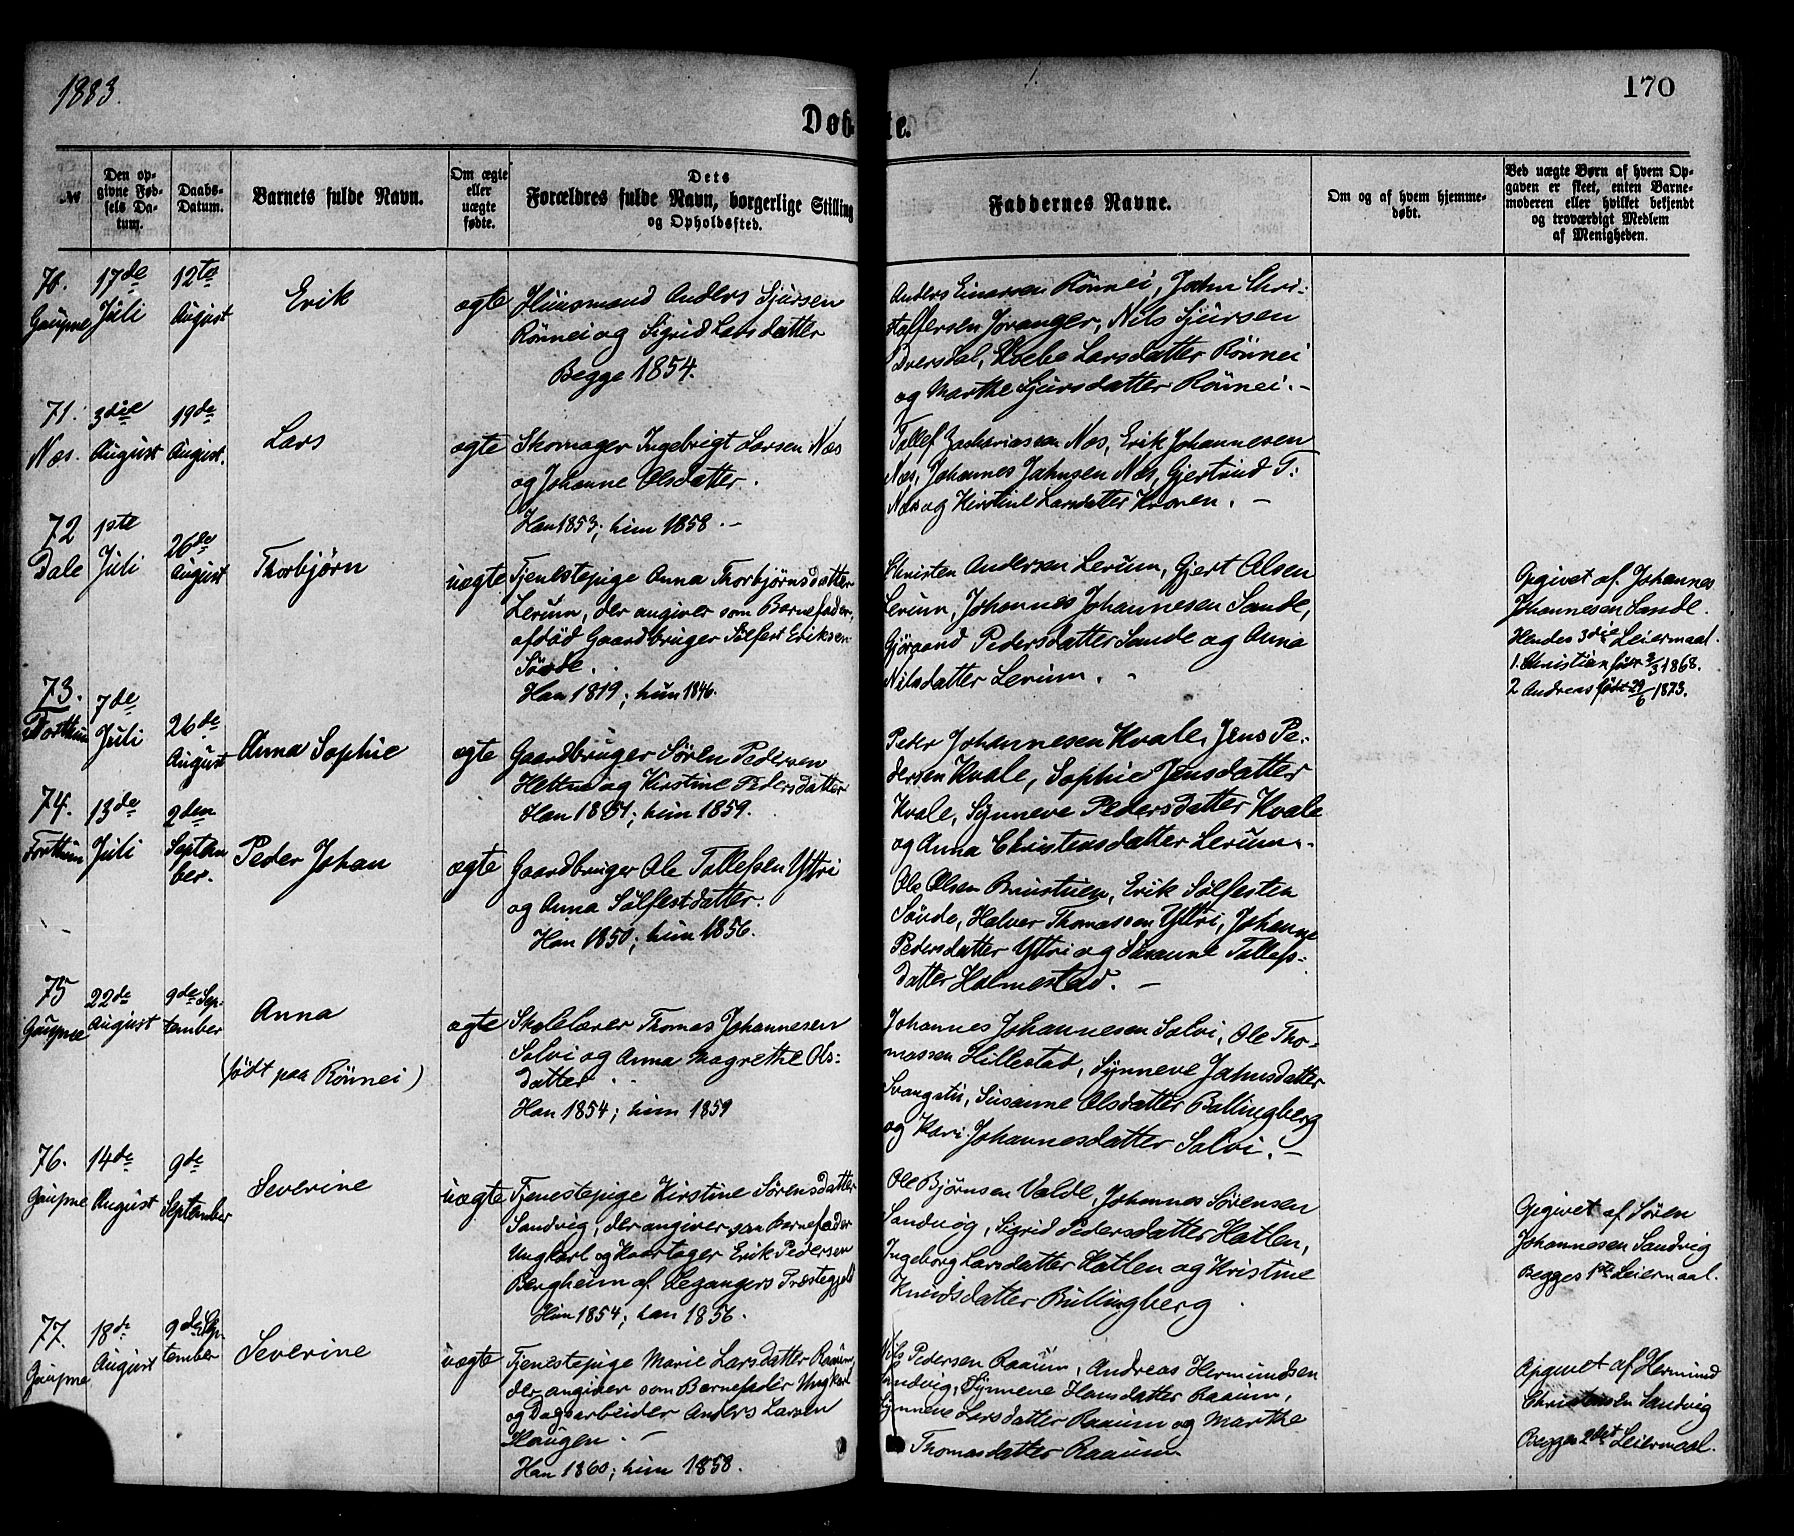 1883.
170
Døb te.
№
Den op-
givne Fød-
sels Da-
tum.
Daabs-
Datum.
Barnets fulde Navn.
Om ægte
eller
uægte
fødte.
Dets
Forældres fulde Navn, borgerlige Stilling
og Opholdssted.
Faddernes Navne.
Om og af hvem hjemme-
døbt.
Ved uægte Børn af hvem Op-
gaven er skeet, enten Barne-
moderen eller hvilket bekjendt
og troværdigt Medlem
af Menigheden.
70.
Gaupne
17de
Juli
12te
August
Erik
ægte
Huusmand Anders Sjursen
Rönnei og Sigrid Larsdatter
Begge 1854.
Anders Einarsen Rönnei, John Chri-
stoffersen Joranger, Nils Sjursen
Dversdal, Larsdatter Rönnei
og Marthe Sjursdatter Rönnei. -
71.
Næs.
3die
August
19de
August.
Lars
ægte
Skomager Ingebrigt Larsen Næs
og Johanne Olsdatter.
Han 1853; hun 1858. -
Tollef Zachariassen Næs, Erik Johannesen
Næs, Johannes Jahnsen Næs, Gjertrud T:
Næs og Kirstine Larsdatter Kronen. -
72
Dale
1ste
Juli
26de
August
Thorbjørn
uægte
Tjenestepige Anna Thorbjørnsdatter
Lerum, der angiver som Barnefader,
afdöd Gaardbruger Sølfest Eriksen
Sövde.
Han 1819; hun 1846.
Christen Andersen Lerum, Gjert Olsen
Lerum, Johannes Johannesen Sande,
Gjøraand Pedersdatter Sande og Anna
Nilsdatter Lerum.
Opgivet af Johannes
Johannesen Sande.
Hendes 3die Leiermaal.
1. Christian født 3/3 1868.
2 Andreas født 29/6 1873.
73.
Forthun
7de
Juli
26de
August
Anna Sophie
ægte
Gaardbruger Søren Pedersen
Hettne og Kirstine Pedersdatter
Han 1851; hun 1859.
Peder Johannesen Kvale, Jens Pe-
dersen Kvale, Sophie Jensdatter
Kvale, Synneve Pedersdatter Kvale
og Anna Christensdatter Lerum.
74.
Forthun
13de
Juli
2den
Septem
ber.
Peder Johan
ægte
Gaardbruger Ole Tollefsen Yttri
og Anna Sølfestdatter.
Han 1850; hun 1856.
Ole Olsen Bruстuen, Erik Sølfesten
Søvde, Halvor Thomassen Yttri, Johanne
Pedersdatter Yttri og Susanne Tollefs-
datter Holmestad. -
75
Gaupne
22de
August
9de Sep-
tember
Anna
(født paa Rönnei)
ægte
Skolelærer Thomas Johannesen
Solvi og Anna Magrethe Ols-
datter.
Han 1854; hun 1859
Johannes Johannesen Solvi, Ole Tho-
massen Hillestad, Synneve Jahnsdatter
Svangstu, Susanne Olsdatter Bollingberg
og Kari Johannesdatter Solvi. -
76.
Gaupne
14de
August
9de
September
Severine
uægte
Tjenestepige Kirstine Sørensdatter
Sandvig, der angiver som Barnefader
Ungkarl og Haartager Erik Pedersen
Bergheim af Leganger Præstegjeld
Hun 1854; han 1856.
Ole Bjørnsen Valde, Johannes Sørensen
Sandvig, Sigrid Pedersdatter Hatlen,
Ingeborg Larsdatter Hatlen og Kristine
Knudsdatter Bullingberg.
Opgivet af Søren
Johannesen Sandvig
Begges 1ste Leiermaal.
77.
Gaupne
18de
August
9de Sep-
tember
Severine
uægte
Tjenestepige Marie Larsdatter Raaum,
der angiver som Barnefader Ungkarl
og Dagsarbeider Anders Larsen
Haugen. -
Han 1860; hun 1858.
Nils Pedersen Raaum, Andreas Hermundsen
Sandvig, Synneve Hansdatter Raaum,
Synneve Larsdatter Raaum og Marthe
Thomasdatter Raaum
Opgivet af Hermund
Christensen Sandvig
Begges 2det Leiermaal.